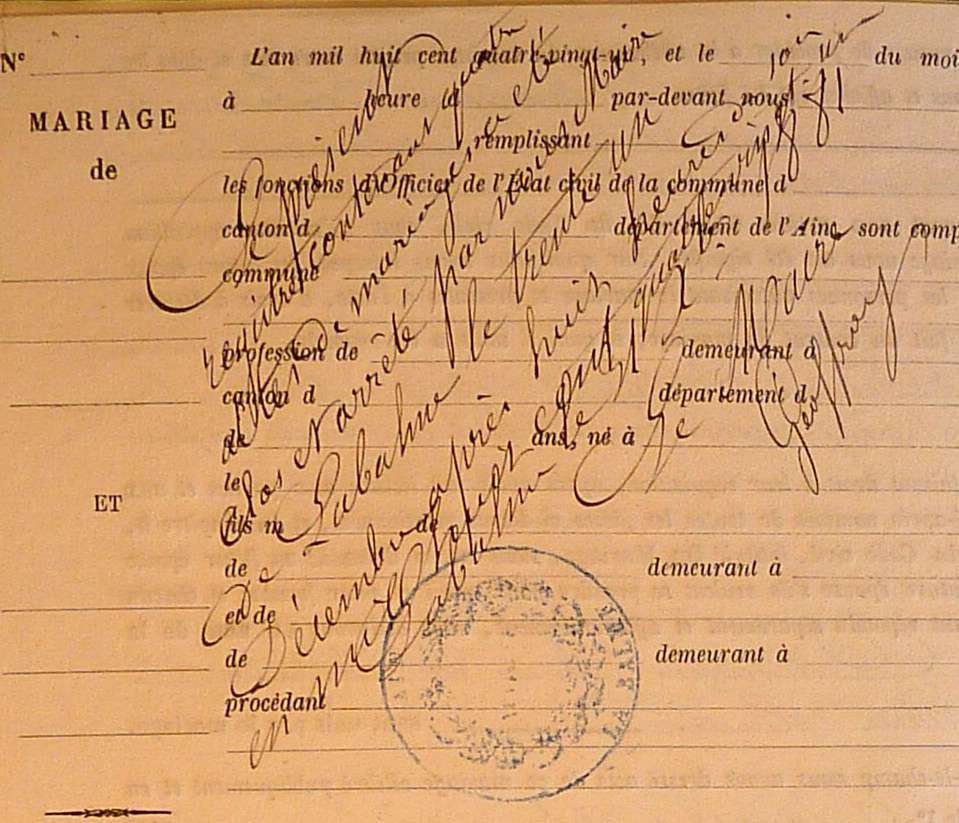 N° L'an mil huit cent quatre-vingt-un, et le du moi
à heure d par-devant nous
MARIAGE
remplissant
de
les fonctions d'Officier de l'État civil de la commune d
canton d département de l'Aine sont comp
commune
profession de demeurant à
canton d département d
de ans, né à
le
ET
fils m de
de demeurant à
et de
de demeurant à
procédant
Le présent
registre contenant quatre
actes de mariages a été
clos et arrêté par nous Maire
de Labalme le trente un
Décembre après huit heures du
en
Labalme le 31 Xbre 1881
Le Maire
Geoffray
LA BALME